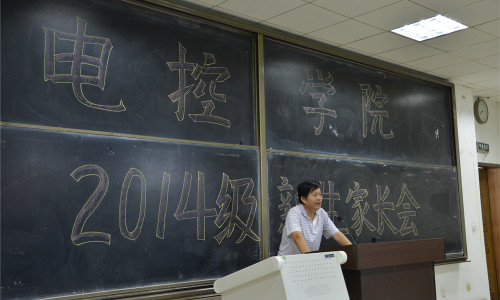 电控学院
2014级新生家长会